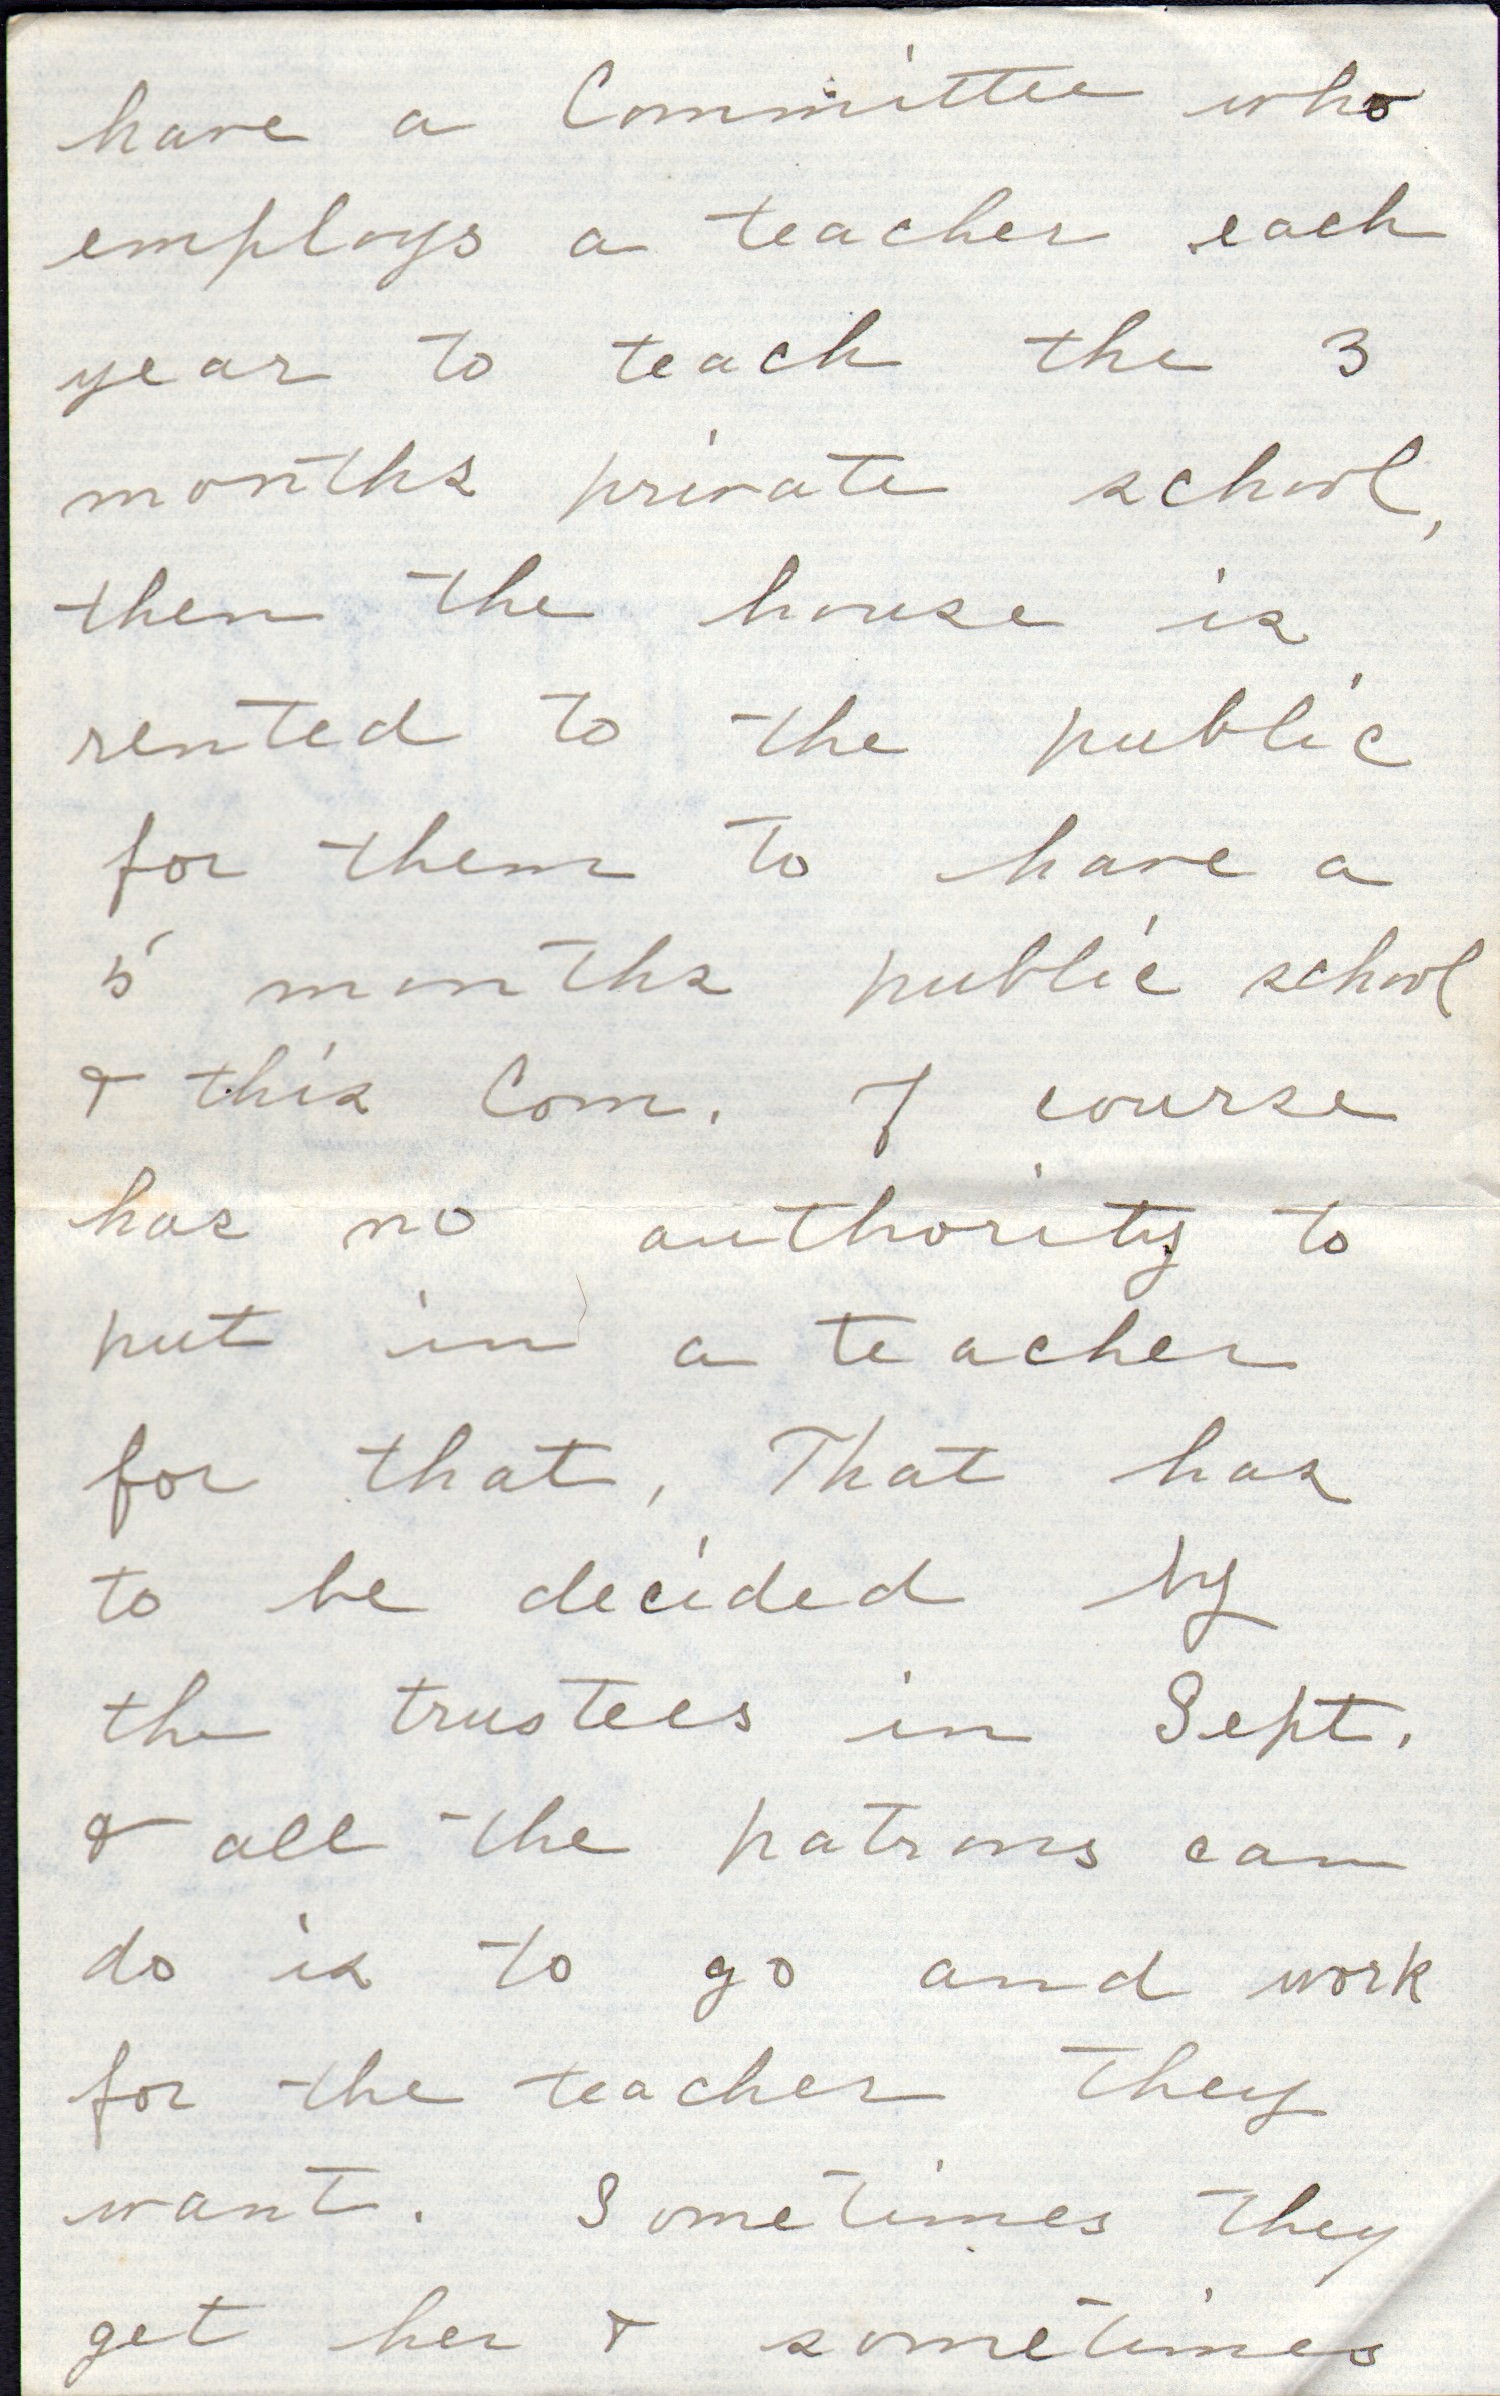 have a Committee who
employs a teacher each
year to teach the 3
months private school,
then the house is
rented to the public
for them to have a
5 months public school
& this Com. of course
has no authority to
put in a teacher
for that, That has
to be decided by
the trustees in Sept.
& all the patrons can
do is to go and work
for the teacher they
want. Sometimes they
get her & sometimes